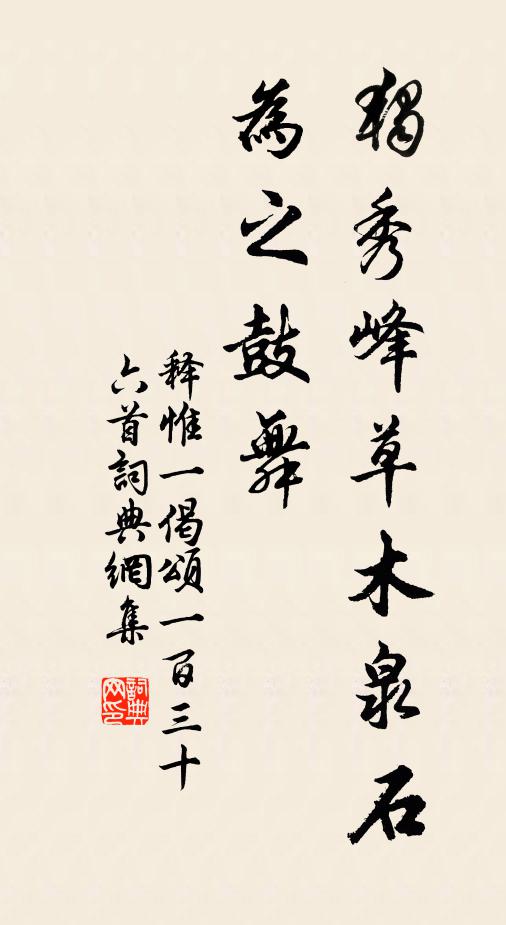 獨秀峰草木泉石
為之鼓舞
释惟一偈頌一百三十
六首詞典網集
詞典
网印